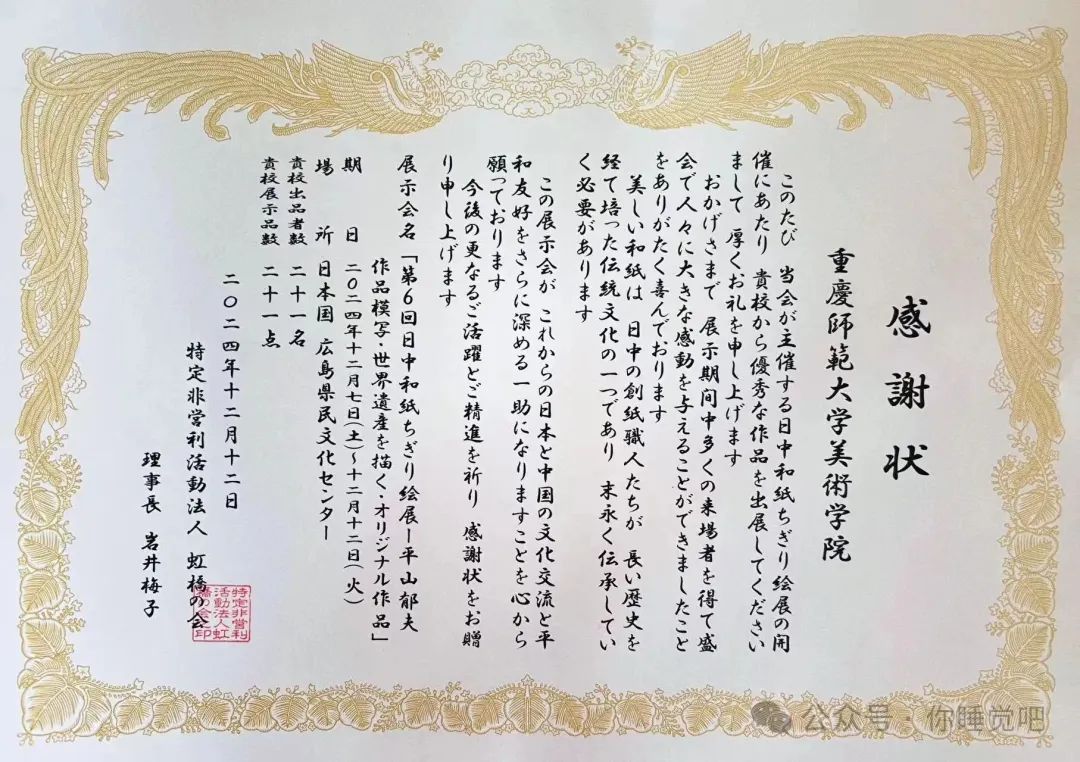 感謝状
重慶師範大学美術学院
このたび 当会が主催する日中和紙ちぎり絵展の開
催にあたり 貴校から優秀な作品を出展してください
まして 厚くお礼を申し上げます
おかげさまで 展示期間中多くの来場者を得て盛
会で人々に大きな感動を与えることができましたこと
をありがたく喜んでおります
美しい和紙は 日中の創紙職人たちが 長い歴史を
経て培った伝統文化の一つであり 末永く伝承してい
く必要があります
この展示会が これからの日本と中国の文化交流と平
和友好をさらに深める一助になりますことを心から
願っております
今後の更なるご活躍とご精進を祈り 感謝状をお贈
り申し上げます
展示会名「第6回日中和紙ちぎり絵展ー平山郁夫
作品模写・世界遺産を描く・オリジナル作品」
期日 二〇二四年十二月七日(土)〜十二月十二日(火)
場所 日本国 広島県民文化センター
貴校出品者数 二十一名
貴校展示品数 二十一点
二〇二四年十二月十二日
特定非営利活動法人 虹橋の会
理事長 岩井梅子
特定非営利
活動法人虹
橋の会之印
公众号·你睡觉吧